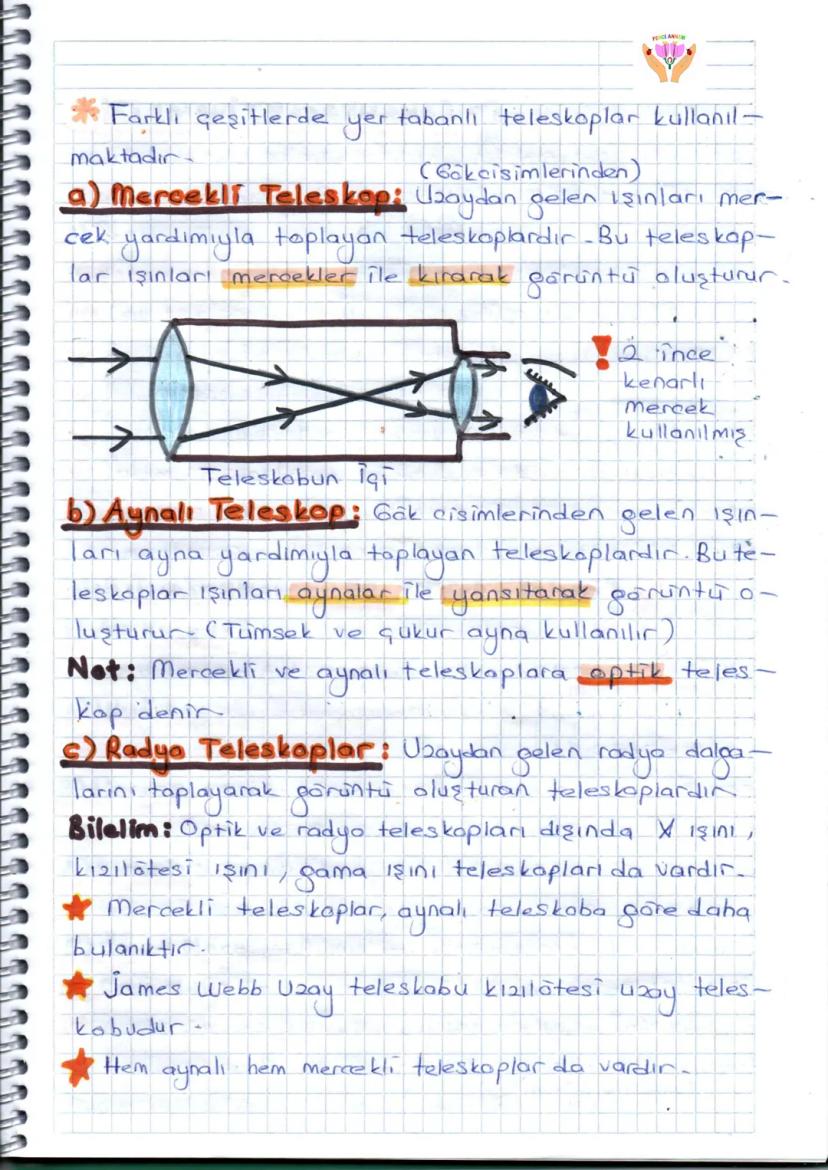 FENCE ANNEM
* Farklı çeşitlerde yer tabanlı teleskoplar kullanıl-
maktadır.
(Gökcisimlerinden)
a) Mercekli Teleskop: Uzaydan gelen ışınları mer-
cek yardımıyla toplayan teleskoplardır. Bu teleskop-
lar ışınları mercekler ile kırarak görüntü oluşturur.
! 2 ince
kenarlı
mercek
kullanılmış
Teleskobun İçi
b) Aynalı Teleskop: Gök cisimlerinden gelen ışın-
ları ayna yardımıyla toplayan teleskoplardır. Bu te-
leskoplar ışınları aynalar ile yansıtarak görüntü o-
luşturur. (Tümsek ve çukur ayna kullanılır)
Not: Mercekli ve aynalı teleskoplara optik teles-
kop denir.
c) Radyo Teleskoplar: Uzaydan gelen radyo dalga-
larını toplayarak görüntü oluşturan teleskoplardır.
Bilelim: Optik ve radyo teleskopları dışında X ışını,
kızılötesi ışını, gama ışını teleskopları da vardır.
★ Mercekli teleskoplar, aynalı teleskoba göre daha
bulanıktır.
★ James Webb Uzay teleskobu kızılötesi uzay teles-
kobudur.
★ Hem aynalı hem mercekli teleskoplar da vardır.